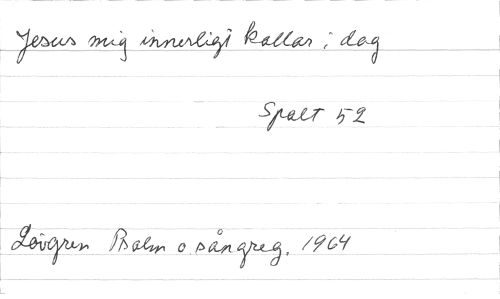 Jesus mig innerligt kallar i dag
Spalt 52
Lövgren Psalm o. sångreg. 1964